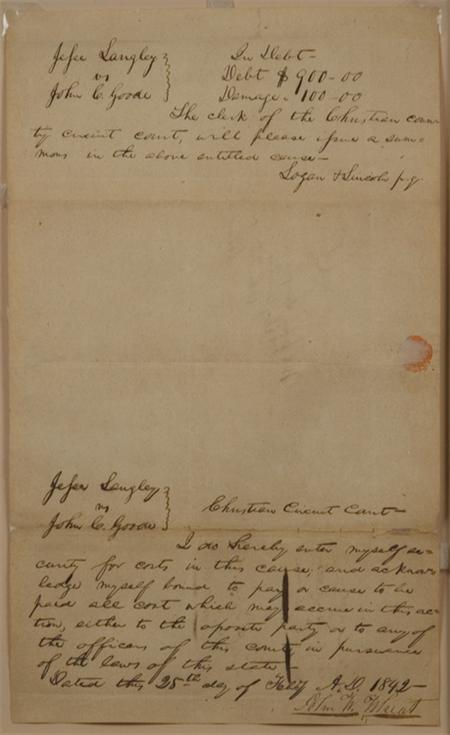 Jesse Langley
vs
John C. Goode
In Debt—
Debt $ 900-00
Damage " 100-00
The clerk of the Christian coun-
ty circuit court, will please issue a sum-
mons in the above entitled cause—
Logan & Lincoln p.q.
Jesse Langley
vs
John C. Goode
Christian Circuit Court—
I do hereby enter myself se-
curity for costs in this cause, and acknow-
ledge myself bound to pay or cause to be
paid all cost which may accrue in this ac-
tion, either to the oposite party or to any of
the officers of this court in pursuance
of the laws of this state—
Dated this 25th day of Feby A.D. 1842—
John W. Wheat